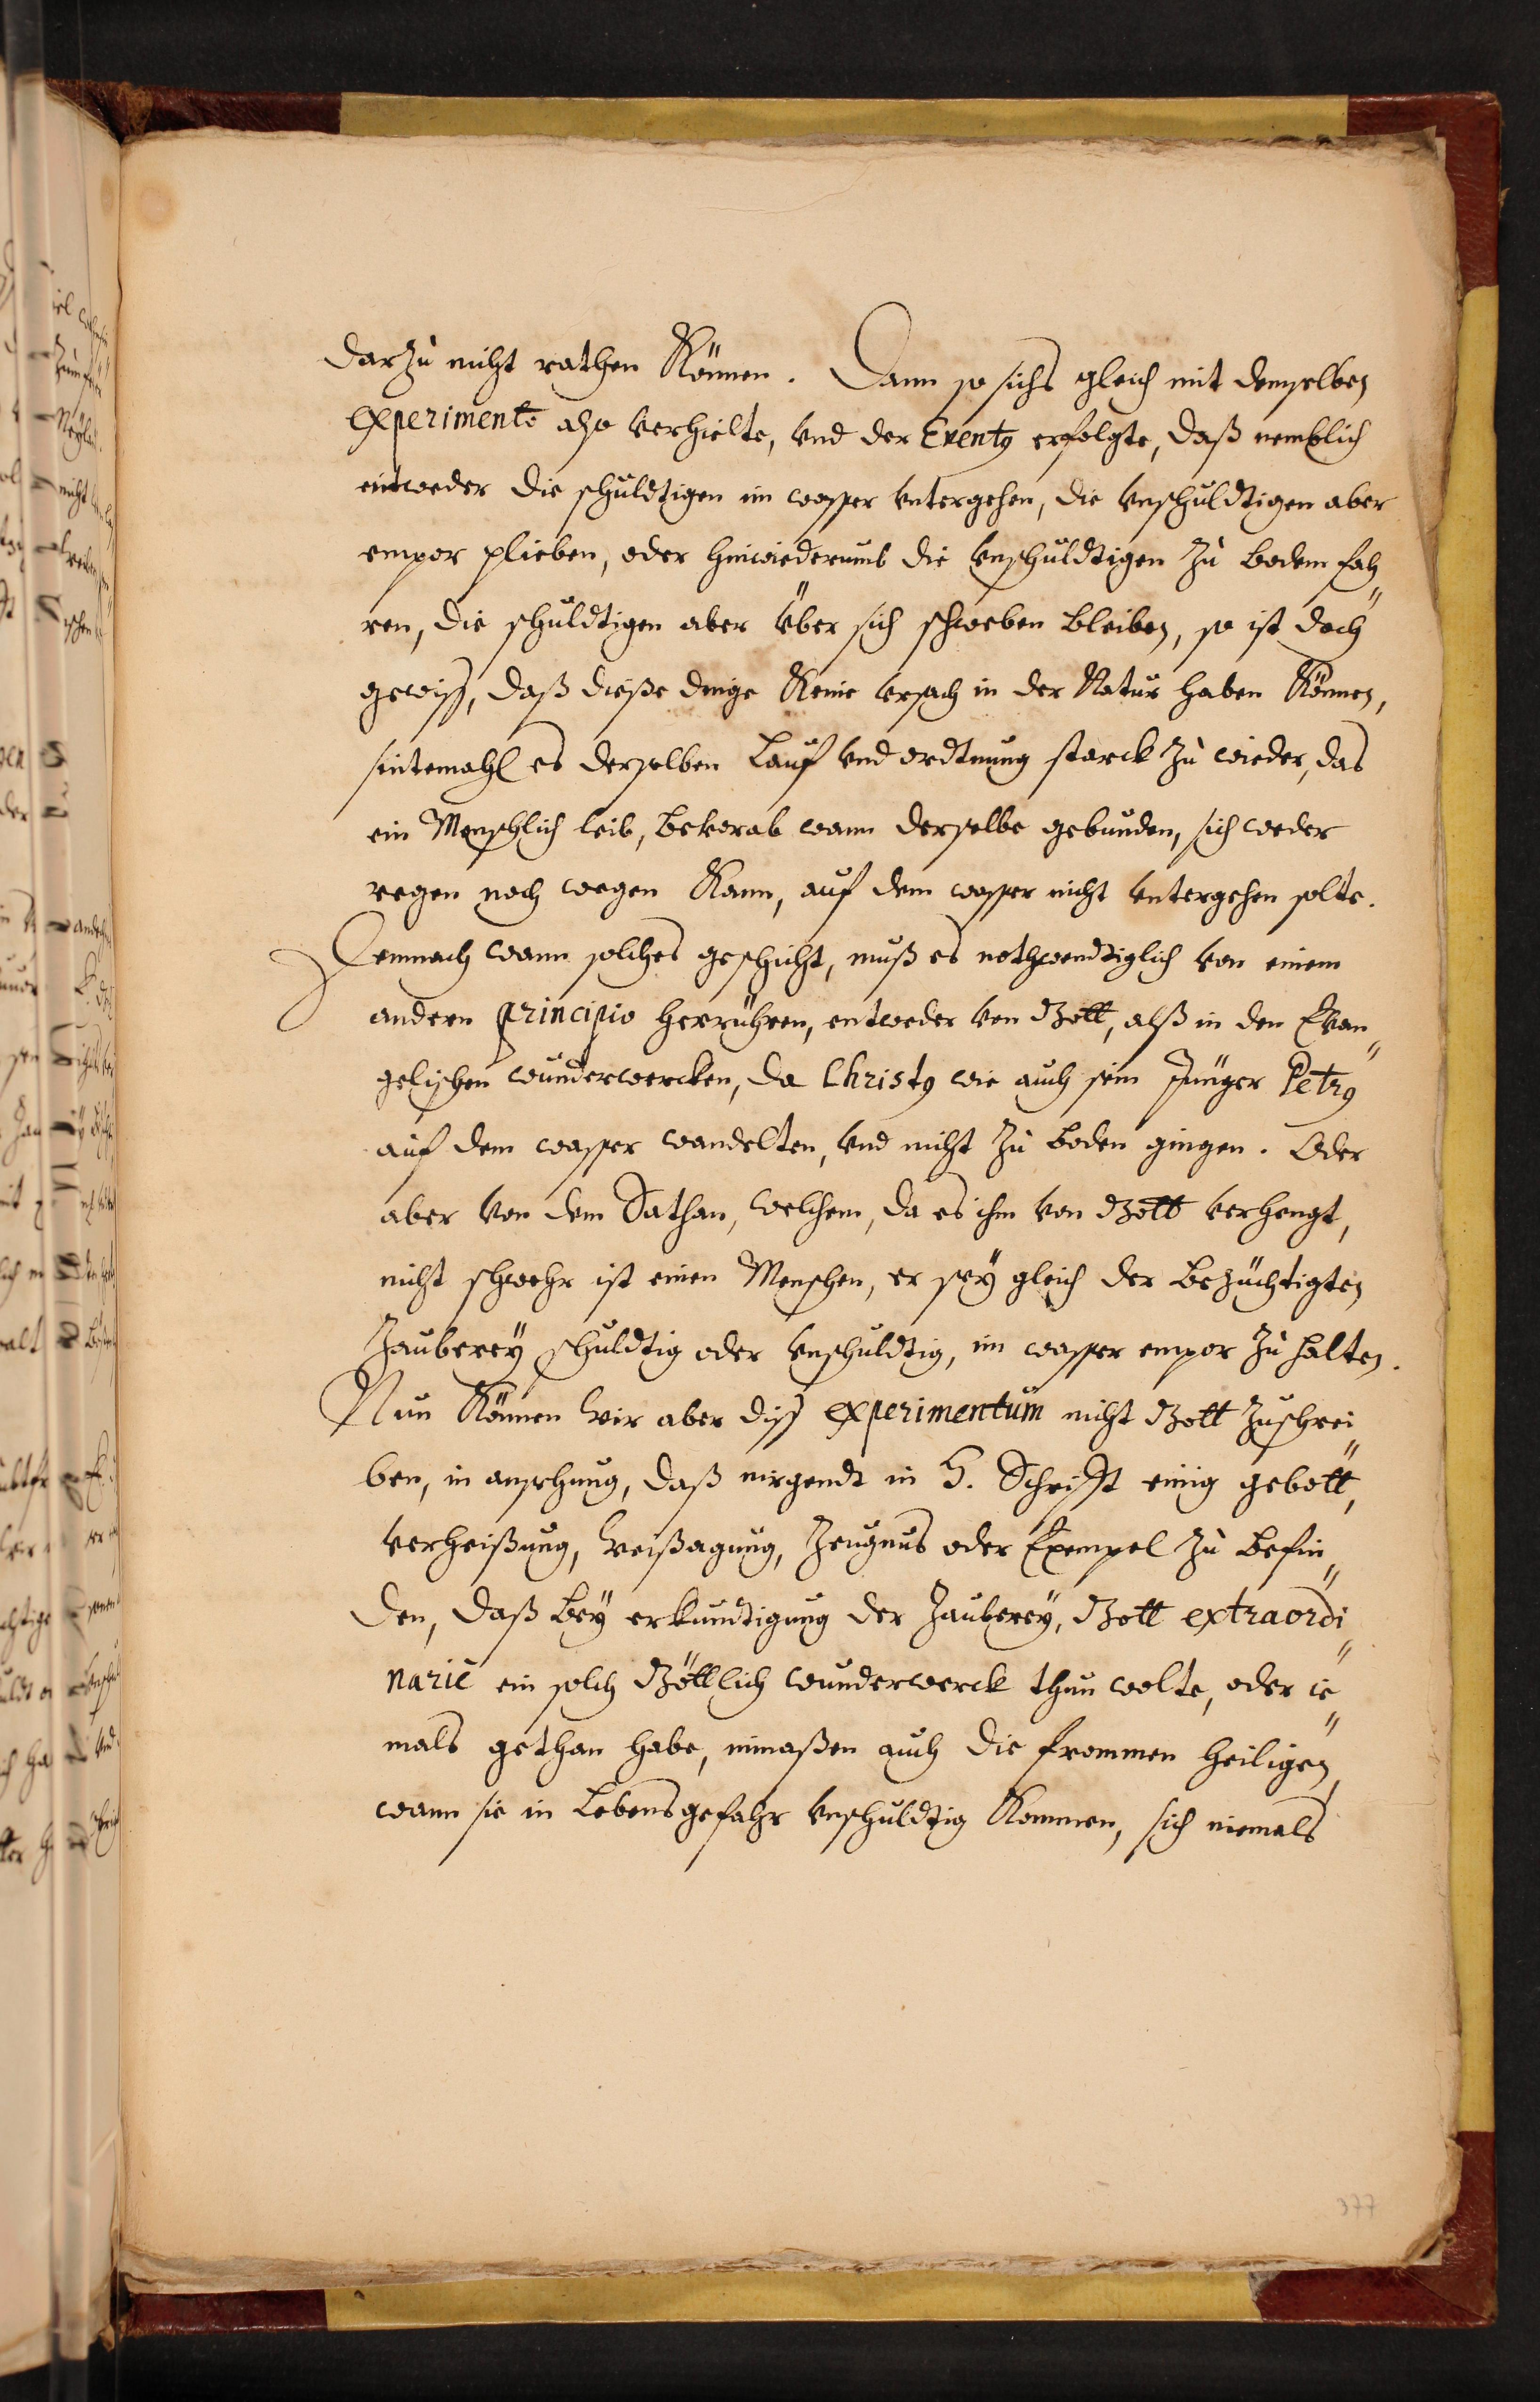 darzu nicht rathen Können. Dann so sichs gleich mit demselben
experimento also verhielte, vnd der Eventus erfolgte, daß nemblich
entweder die schuldtigen im wasser vntergehen, die vnschuldtigen aber
empor plieben, oder hinwiederumb die vnschuldtigen zu bodem fah„
ren, die schuldtigen aber über sich schweben bleiben, so ist doch
gewiss, daß dieße dinge Keine vrsach in der Natur haben Können,
sintemahl es derselben lauf vnd ordtnung starck zu wieder, das
ein Menschlich leib, bevorab wann derselbe gebunden, sich weder
regen noch wegen Kann, auf dem wasser nicht vntergehen solte.
Demnach wann solches geschicht, muß es nothwendtiglich von einem
andern principio herrühren, entweder von Gott, alß in den Evan„
gelischen wunderwercken, da Christus wie auch sein Jünger Petrus
auf dem wasser wandelten, vnd nicht zu boden gingen. Oder
aber von dem Sathan, welchem, da es ihm von Gott verhengt,
nicht schwehr ist einen Menschen, er seÿ gleich der bezüchtigten
Zauberey schuldtig oder vnschuldtig, im wasser empor zu halten.
Nun Können wir aber diss experimentum nicht Gott zuschrei„
ben, in ansehung, daß nirgendt in H. Schrifft einig gebott,
verheißung, weißagung, Zeugnus oder Exempel zu befin„
den, daß beÿ erkundtigung der Zaubereÿ, Gott extraordi„
narie ein solch Göttlich wunderwerck thun wolte, oder ie„
mals gethan habe, inmaßen auch die frommen heiligen,
wann sie in lebensgefahr vnschuldtig Kommen, sich niemals
377